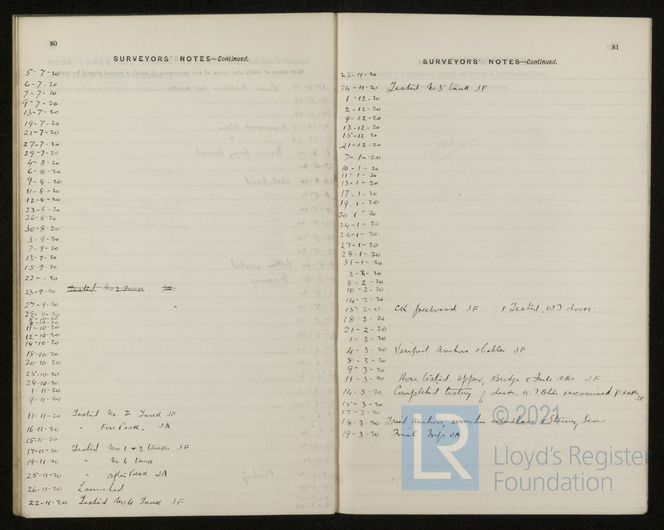 80
SURVEYORS' NOTES—Continued.
5-7-20
6-7-20
7-7-20
9-7-20
13-7-20
19-7-20
21-7-20
27-7-20
29-7-20
4-8-20
6-8-20
9-8-20
11-8-20
12-8-20
23-8-20
26-8-20
30-8-20
3-9-20
7-9-20
13-9-20
15-9-20
22-9-20
23-9-20 Tested No 3 Tank JA
27-9-20
11-10-20
12-10-20
14-10-20
18-10-20
20-10-20
25-10-20
28-10-20
1-11-20
9-11-20
11-11-20 Tested No. 2 Tank JF
16-11-20 " Fore Peak. JA
15-11-20
17-11-20 Tested No 1 + 3 tanks JF
19-11-20 " No 6 tank
25-11-20 " after Peak JA
26-11-20 Launched
22-11-20 Tested No 6 Tank JF
81
SURVEYORS' NOTES—Continued.
23-11-20
24-11-20 Tested No 5 tank JF
1-12-20
2-12-20
9-12-20
13-12-20
15-12-20
21-12-20
7-1-20
10-1-20
11-1-20
13-1-20
17-1-20
19-1-20
20-1-20
24-1-20
26-1-20
27-1-20
28-1-20
31-1-20
2-2-20
8-2-20
10-2-20
14-2-20
15-2-0 Ck freeboard JF + Tested WT doors.
18-2-20
21-2-20
1-3-20
4-3-20 Verified Anchors + Cables JF
8-3-20
9-3-20
11-3-20 Hose tested upper, Bridge + Fcle dks JF
14-3-20 Completed testing of decks. WT Blds reexamined Peak JF
15-3-20
17-3-20
18-3-20 Tried anchors, winches windlass + Steering Gear
19-3-20 Trial Trip JA
© 2021
LR
Lloyd's Register
Foundation